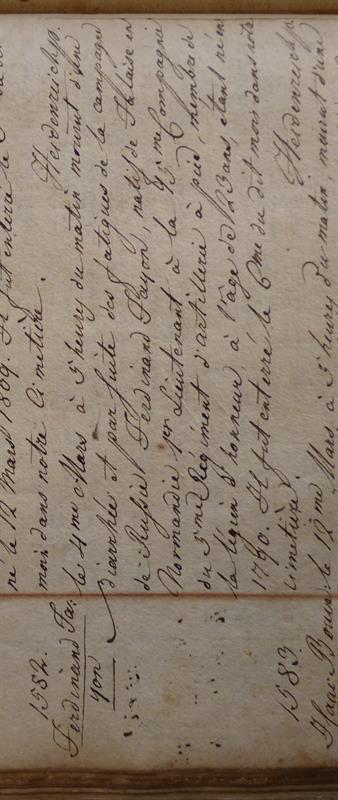 né le 12 Mars 1809. Il fut enterré le
mois dans notre Cimetière.
Heidenreich p.
1582.
Ferdinand Fa:
yon
le 4me Mars à 5 heures du matin mourut d'une
diarrhée et par suite des fatigues de la campagne
de Russie Ferdinand Fayon, natif de Falaise en
Normandie 1er Lieutenant à la 15me Compagnie
du 5me Régiment d'artillerie à pied, membre de
la légion d'honneur à l'âge de 23 ans étant né en
1790. Il fut enterré le 6me du dit mois dans notre
cimetière.
Heidenreich p.
1583.
Isaac
le 12me Mars à 5 heures du matin, mourut d'une